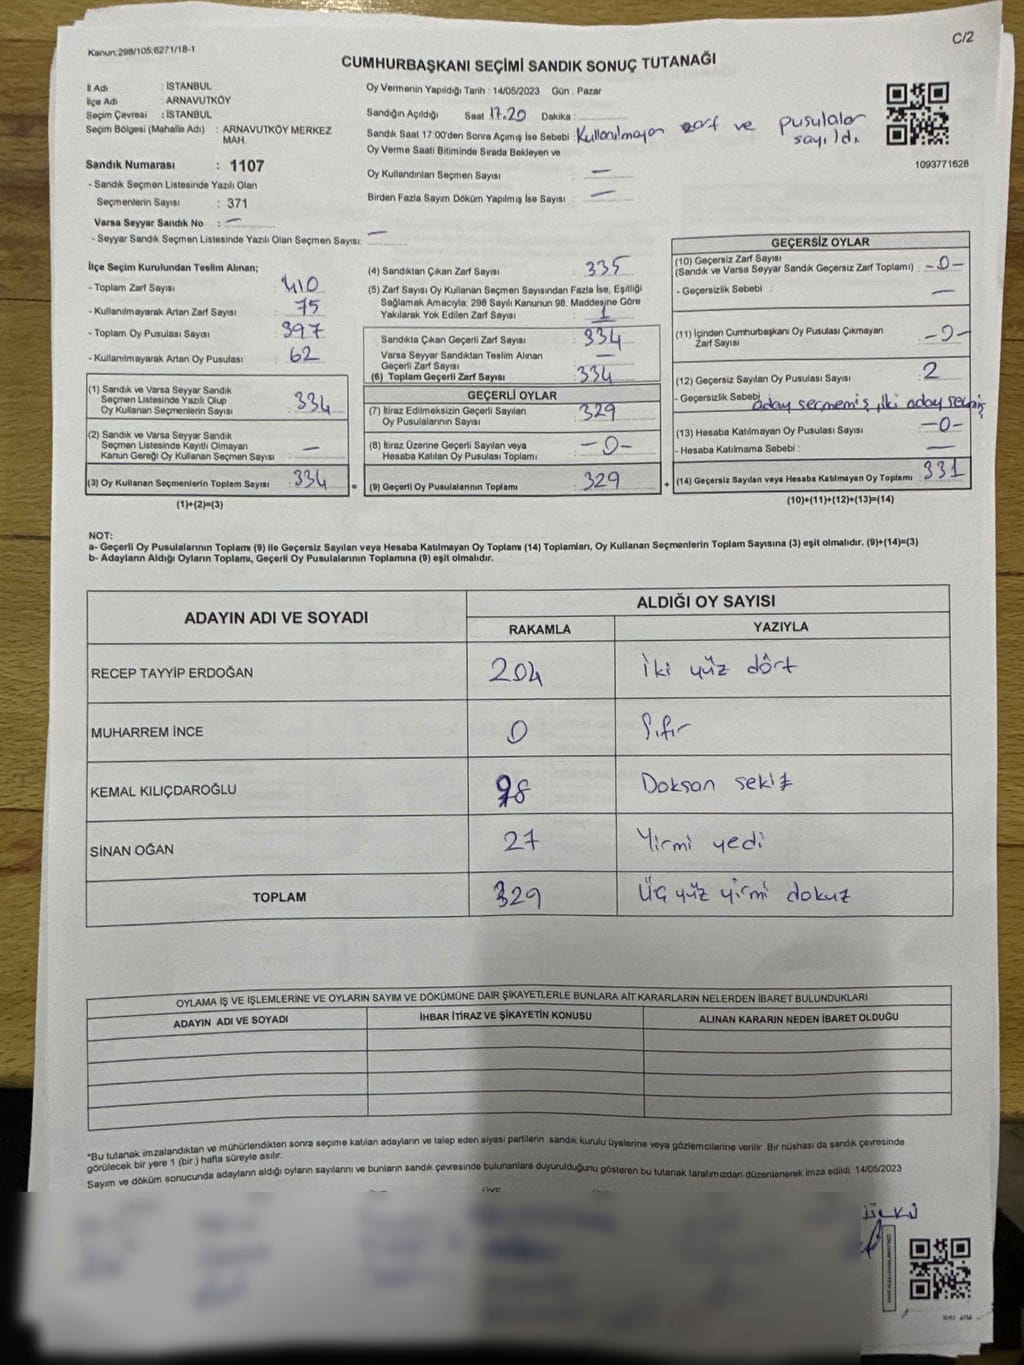 C/2
Kanun:298/105;6271/18-1
CUMHURBAŞKANI SEÇİMİ SANDIK SONUÇ TUTANAĞI
İl Adı : İSTANBUL
İlçe Adı : ARNAVUTKÖY
Seçim Çevresi : İSTANBUL
Seçim Bölgesi (Mahalle Adı) : ARNAVUTKÖY MERKEZ
MAH.
Sandık Numarası : 1107
- Sandık Seçmen Listesinde Yazılı Olan
Seçmenlerin Sayısı : 371
Varsa Seyyar Sandık No : —
- Seyyar Sandık Seçmen Listesinde Yazılı Olan Seçmen Sayısı: —
Oy Vermenin Yapıldığı Tarih : 14/05/2023 Gün : Pazar
Sandığın Açıldığı Saat 17.20 Dakika :
Sandık Saat 17:00'den Sonra Açımış İse Sebebi Kullanılmayan zarf ve pusulalar
sayıldı.
Oy Verme Saati Bitiminde Sırada Bekleyen ve
Oy Kullandırılan Seçmen Sayısı : —
Birden Fazla Sayım Döküm Yapılmış İse Sayısı : —
1093771628
İlçe Seçim Kurulundan Teslim Alınan;
- Toplam Zarf Sayısı : 410
- Kullanılmayarak Artan Zarf Sayısı : 75
- Toplam Oy Pusulası Sayısı : 397
- Kullanılmayarak Artan Oy Pusulası : 62
(1) Sandık ve Varsa Seyyar Sandık
Seçmen Listesinde Yazılı Olup
Oy Kullanan Seçmenlerin Sayısı : 334
(2) Sandık ve Varsa Seyyar Sandık
Seçmen Listesinde Kayıtlı Olmayan
Kanun Gereği Oy Kullanan Seçmen Sayısı : —
(3) Oy Kullanan Seçmenlerin Toplam Sayısı : 334
(1)+(2)=(3)
(4) Sandıktan Çıkan Zarf Sayısı : 335
(5) Zarf Sayısı Oy Kullanan Seçmen Sayısından Fazla İse, Eşitliği
Sağlamak Amacıyla; 298 Sayılı Kanunun 98. Maddesine Göre
Yakılarak Yok Edilen Zarf Sayısı : 1
Sandıkta Çıkan Geçerli Zarf Sayısı : 334
Varsa Seyyar Sandıktan Teslim Alınan
Geçerli Zarf Sayısı : —
(6) Toplam Geçerli Zarf Sayısı : 334
GEÇERLİ OYLAR
(7) İtiraz Edilmeksizin Geçerli Sayılan
Oy Pusulalarının Sayısı : 329
(8) İtiraz Üzerine Geçerli Sayılan veya
Hesaba Katılan Oy Pusulası Toplamı : —0—
= (9) Geçerli Oy Pusulalarının Toplamı : 329
GEÇERSİZ OYLAR
(10) Geçersiz Zarf Sayısı
(Sandık ve Varsa Seyyar Sandık Geçersiz Zarf Toplamı) : —0—
- Geçersizlik Sebebi : —
(11) İçinden Cumhurbaşkanı Oy Pusulası Çıkmayan
Zarf Sayısı : —0—
(12) Geçersiz Sayılan Oy Pusulası Sayısı : 2
- Geçersizlik Sebebi aday seçmemiş, iki aday seçmiş
(13) Hesaba Katılmayan Oy Pusulası Sayısı : —0—
- Hesaba Katılmama Sebebi : —
+ (14) Geçersiz Sayılan veya Hesaba Katılmayan Oy Toplamı : 331
(10)+(11)+(12)+(13)=(14)
NOT:
a- Geçerli Oy Pusulalarının Toplamı (9) ile Geçersiz Sayılan veya Hesaba Katılmayan Oy Toplamı (14) Toplamları, Oy Kullanan Seçmenlerin Toplam Sayısına (3) eşit olmalıdır. (9)+(14)=(3)
b- Adayların Aldığı Oyların Toplamı, Geçerli Oy Pusulalarının Toplamına (9) eşit olmalıdır.
ADAYIN ADI VE SOYADI ALDIĞI OY SAYISI
RAKAMLA YAZIYLA
RECEP TAYYİP ERDOĞAN 204 İki yüz dört
MUHARREM İNCE 0 Sıfır
KEMAL KILIÇDAROĞLU 98 Doksan sekiz
SİNAN OĞAN 27 Yirmi yedi
TOPLAM 329 Üç yüz yirmi dokuz
OYLAMA İŞ VE İŞLEMLERİNE VE OYLARIN SAYIM VE DÖKÜMÜNE DAİR ŞİKAYETLERLE BUNLARA AİT KARARLARIN NELERDEN İBARET BULUNDUKLARI
ADAYIN ADI VE SOYADI İHBAR İTİRAZ VE ŞİKAYETİN KONUSU ALINAN KARARIN NEDEN İBARET OLDUĞU
*Bu tutanak imzalandıktan ve mühürlendikten sonra seçime katılan adayların ve talep eden siyasi partilerin sandık kurulu üyelerine veya gözlemcilerine verilir. Bir nüshası da sandık çevresinde
görülecek bir yere 1 (bir ) hafta süreyle asılır.
Sayım ve döküm sonucunda adayların aldığı oyların sayılarını ve bunların sandık çevresinde bulunanlara duyurulduğunu gösteren bu tutanak tarafımızdan düzenlenerek imza edildi. 14/05/2023